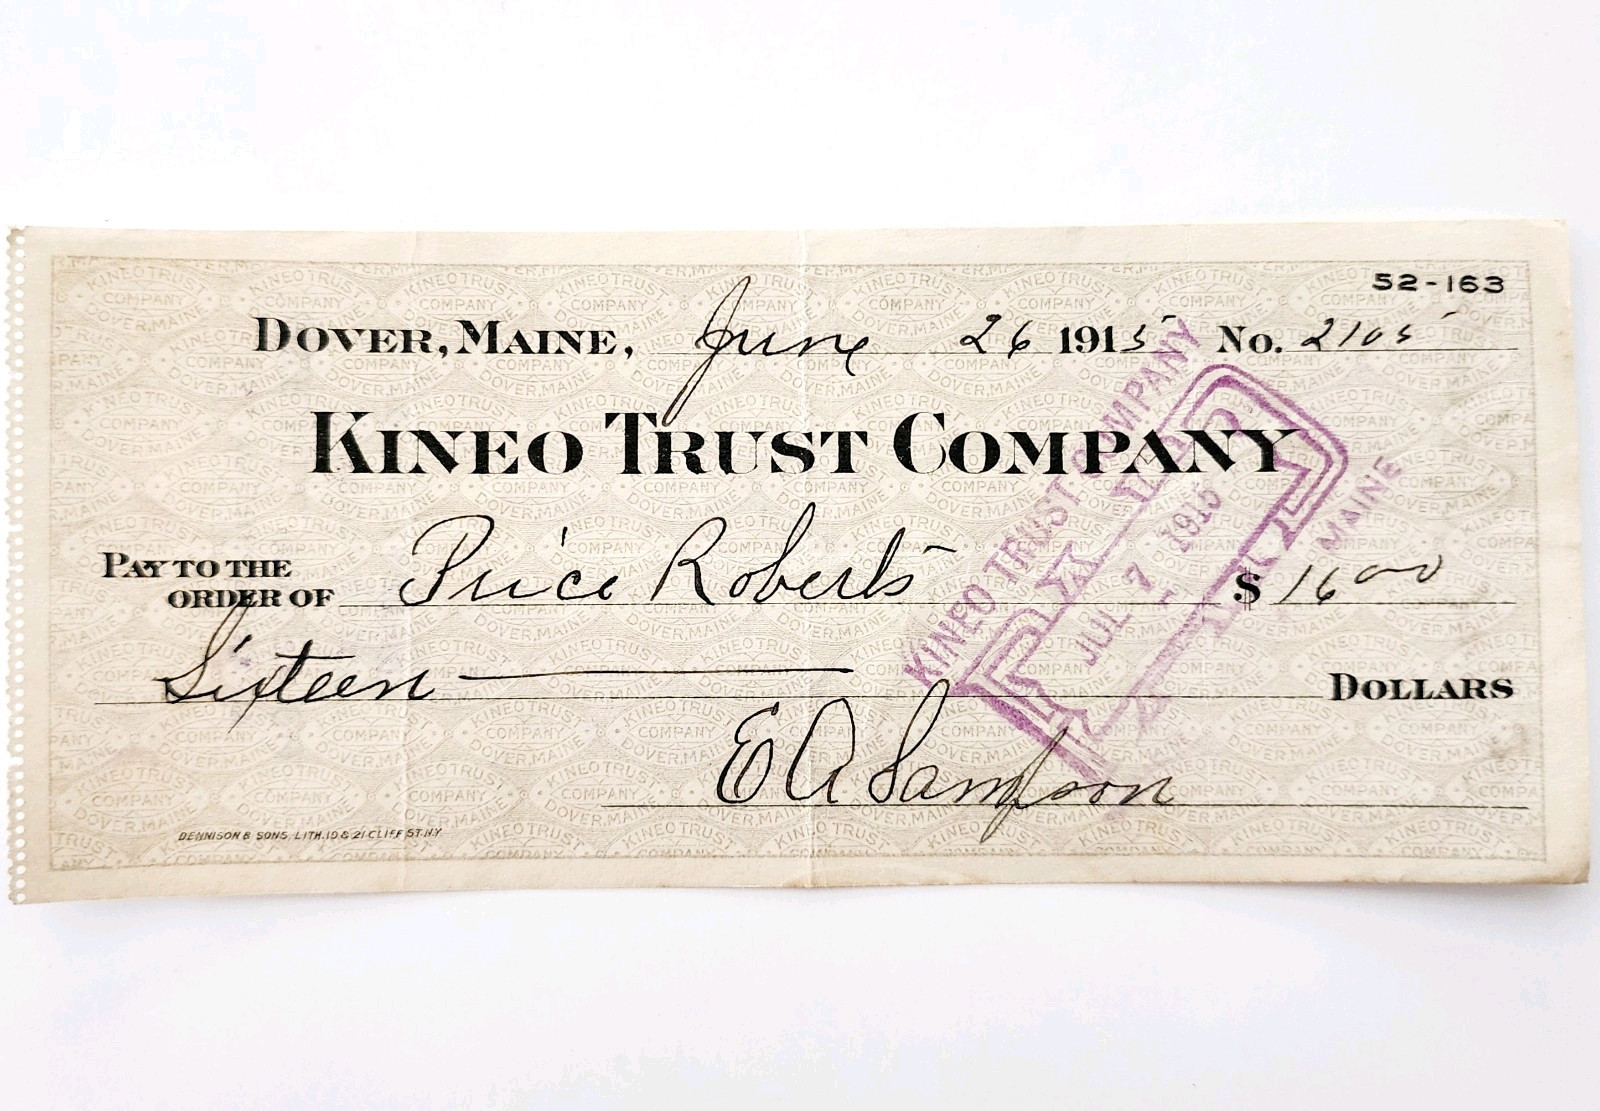 52-163
DOVER, MAINE, June 26 1915 No. 2105
KINEO TRUST COMPANY
PAY TO THE
ORDER OF Price Roberts $ 16 00
Sixteen DOLLARS
E A Sampson
DENNISON & SONS, LITH. 19 & 21 CLIFF ST. N.Y.
KINEO TRUST COMPANY
PAID
JUL 7 1915
MAINE